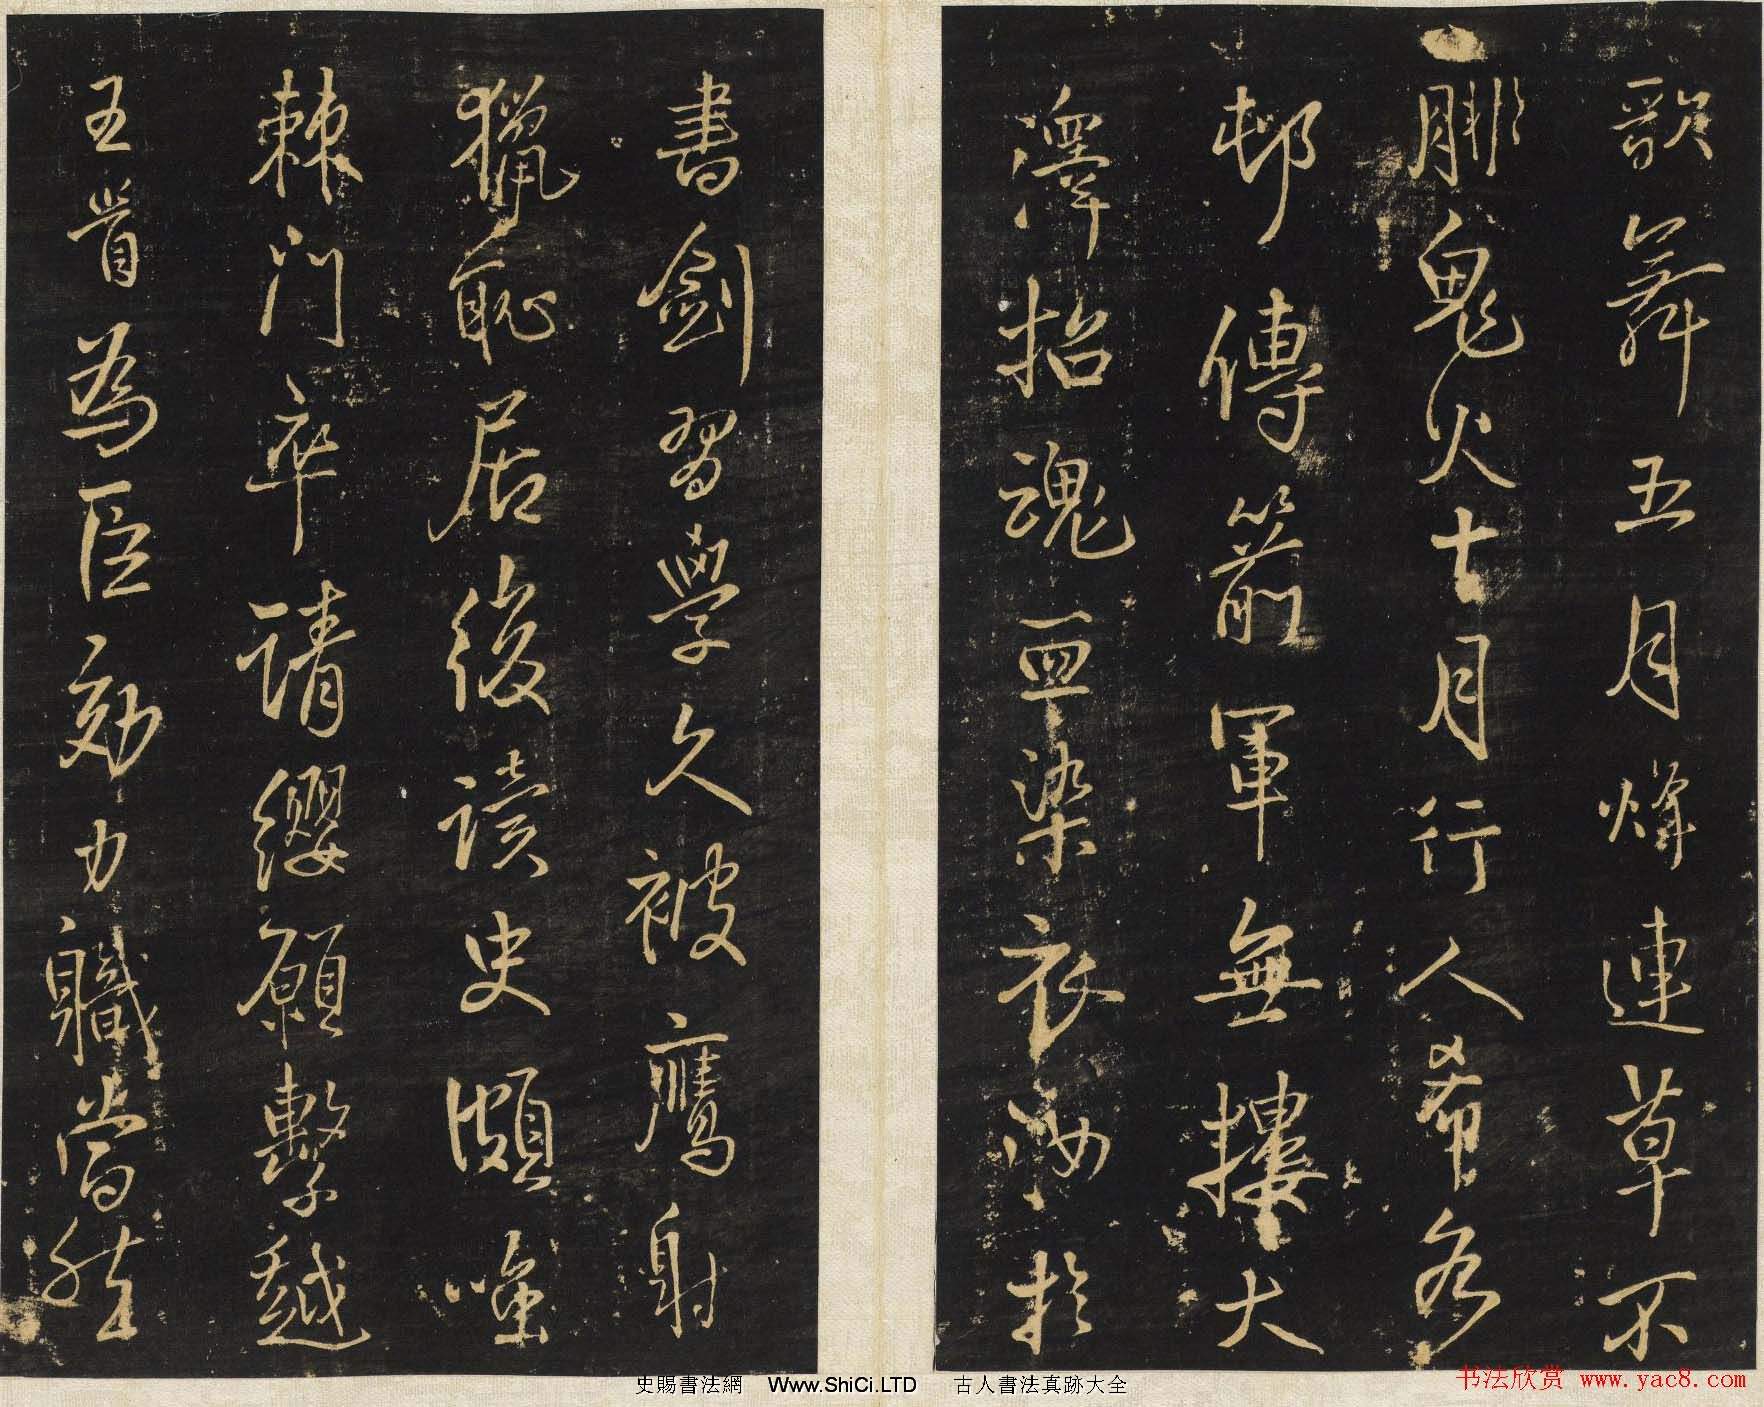 歌舞五月烽連草不
腓鬼火七月行人希各
邨傳箭軍無摟大
澤招魂血染衣汝於
書劍習學久被鷹射
獵恥居後讀史頗嗤
棘門卒請纓願繫越
王首為臣効力職當然
史賜書法網 Www.ShiCi.LTD 古人書法真跡大全
书法欣赏 www.yac8.com